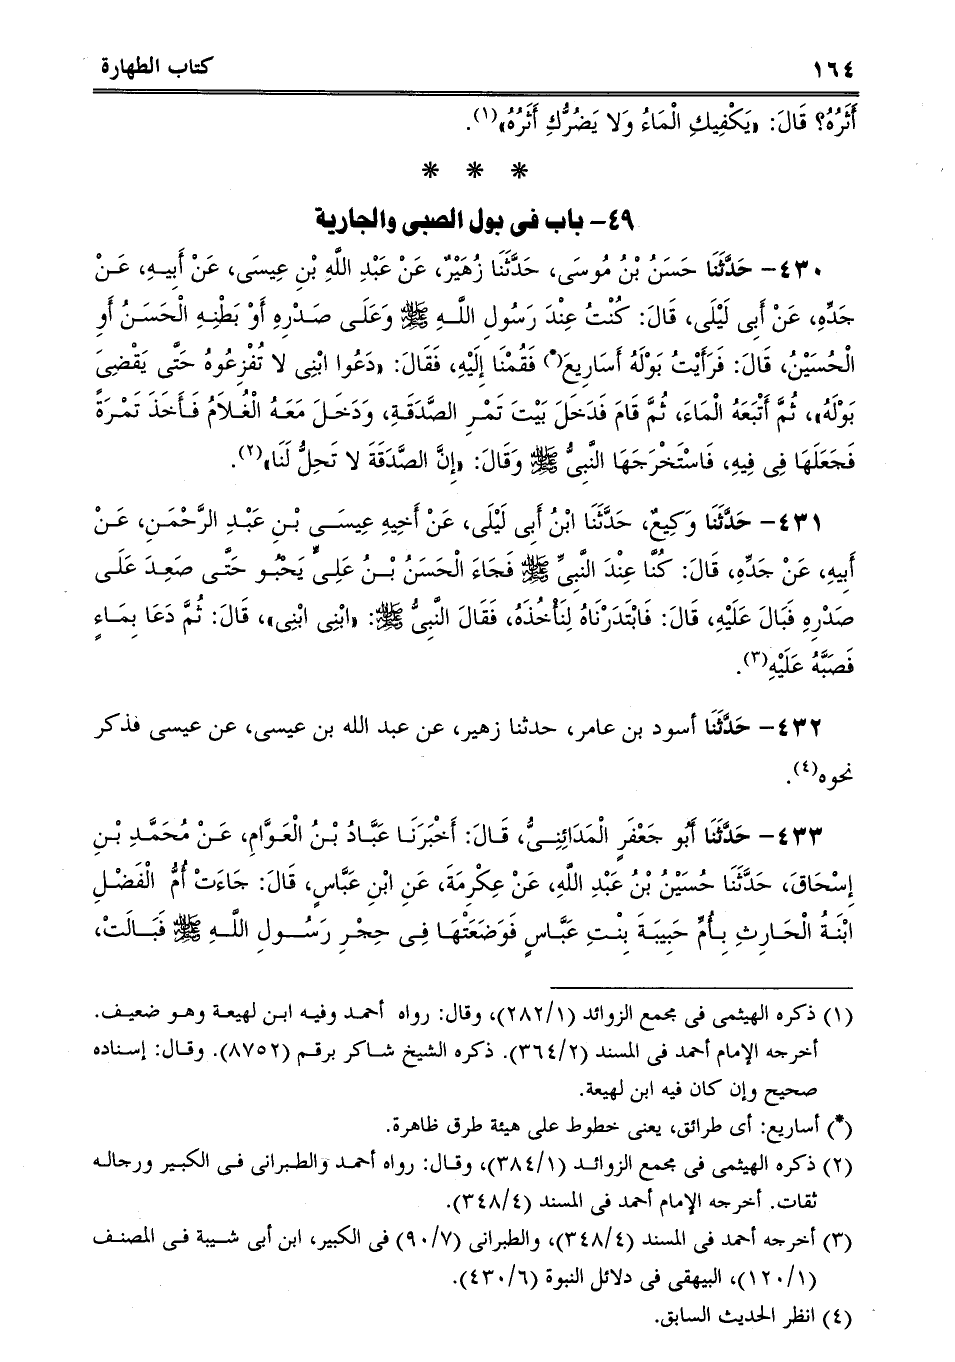 ١٦٤ كتاب الطهارة
أَثَرُهُ؟ قَالَ: «يَكْفِيكِ الْمَاءُ وَلا يَضُرُّكِ أَثَرُهُ»(١).
* * *
٤٩- باب فى بول الصبى والجارية
٤٣٠- حَدَّثَنَا حَسَنُ بْنُ مُوسَى، حَدَّثَنَا زُهَيْرٌ، عَنْ عَبْدِ اللَّهِ بْنِ عِيسَى، عَنْ أَبِيهِ، عَنْ
جَدِّهِ، عَنْ أَبِى لَيْلَى، قَالَ: كُنْتُ عِنْدَ رَسُولِ اللَّهِ ﷺ وَعَلَى صَدْرِهِ أَوْ بَطْنِهِ الْحَسَنُ أَوِ
الْحُسَيْنُ، قَالَ: فَرَأَيْتُ بَوْلَهُ أَسَارِيعَ(*) فَقُمْنَا إِلَيْهِ، فَقَالَ: «دَعُوا ابْنِى لا تُفْزِعُوهُ حَتَّى يَقْضِىَ
بَوْلَهُ»، ثُمَّ أَتْبَعَهُ الْمَاءَ، ثُمَّ قَامَ فَدَخَلَ بَيْتَ تَمْرِ الصَّدَقَةِ، وَدَخَلَ مَعَهُ الْغُلامُ فَأَخَذَ تَمْرَةً
فَجَعَلَهَا فِى فِيهِ، فَاسْتَخْرَجَهَا النَّبِىُّ ﷺ وَقَالَ: «إِنَّ الصَّدَقَةَ لا تَحِلُّ لَنَا»(٢).
٤٣١- حَدَّثَنَا وَكِيعٌ، حَدَّثَنَا ابْنُ أَبِى لَيْلَى، عَنْ أَخِيهِ عِيسَى بْنِ عَبْدِ الرَّحْمَنِ، عَنْ
أَبِيهِ، عَنْ جَدِّهِ، قَالَ: كُنَّا عِنْدَ النَّبِىِّ ﷺ فَجَاءَ الْحَسَنُ بْنُ عَلِىٍّ يَحْبُو حَتَّى صَعِدَ عَلَى
صَدْرِهِ فَبَالَ عَلَيْهِ، قَالَ: فَابْتَدَرْنَاهُ لِنَأْخُذَهُ، فَقَالَ النَّبِىُّ ﷺ: «ابْنِى ابْنِى»، قَالَ: ثُمَّ دَعَا بِمَاءٍ
فَصَبَّهُ عَلَيْهِ(٣).
٤٣٢- حَدَّثَنَا أسود بن عامر، حدثنا زهير، عن عبد الله بن عيسى، عن عيسى فذكر
نحوه(٤).
٤٣٣- حَدَّثَنَا أَبُو جَعْفَرٍ الْمَدَائِنِىُّ، قَالَ: أَخْبَرَنَا عَبَّادُ بْنُ الْعَوَّامِ، عَنْ مُحَمَّدِ بْنِ
إِسْحَاقَ، حَدَّثَنَا حُسَيْنُ بْنُ عَبْدِ اللَّهِ، عَنْ عِكْرِمَةَ، عَنِ ابْنِ عَبَّاسٍ، قَالَ: جَاءَتْ أُمُّ الْفَضْلِ
ابْنَةُ الْحَارِثِ بِأُمِّ حَبِيبَةَ بِنْتِ عَبَّاسٍ فَوَضَعَتْهَا فِى حِجْرِ رَسُولِ اللَّهِ ﷺ فَبَالَتْ،
(١) ذكره الهيثمى فى مجمع الزوائد (٢٨٢/١)، وقال: رواه أحمد وفيه ابن لهيعة وهو ضعيف.
أخرجه الإمام أحمد فى المسند (٣٦٤/٢). ذكره الشيخ شاكر برقم (٨٧٥٢). وقال: إسناده
صحيح وإن كان فيه ابن لهيعة.
(*) أساريع: أى طرائق، يعنى خطوط على هيئة طرق ظاهرة.
(٢) ذكره الهيثمى فى مجمع الزوائد (٣٨٤/١)، وقال: رواه أحمد والطبرانى فى الكبير ورجاله
ثقات. أخرجه الإمام أحمد فى المسند (٣٤٨/٤).
(٣) أخرجه أحمد فى المسند (٣٤٨/٤)، والطبرانى (٩٠/٧) فى الكبير، ابن أبى شيبة فى المصنف
(١٢٠/١)، البيهقى فى دلائل النبوة (٤٣٠/٦).
(٤) انظر الحديث السابق.